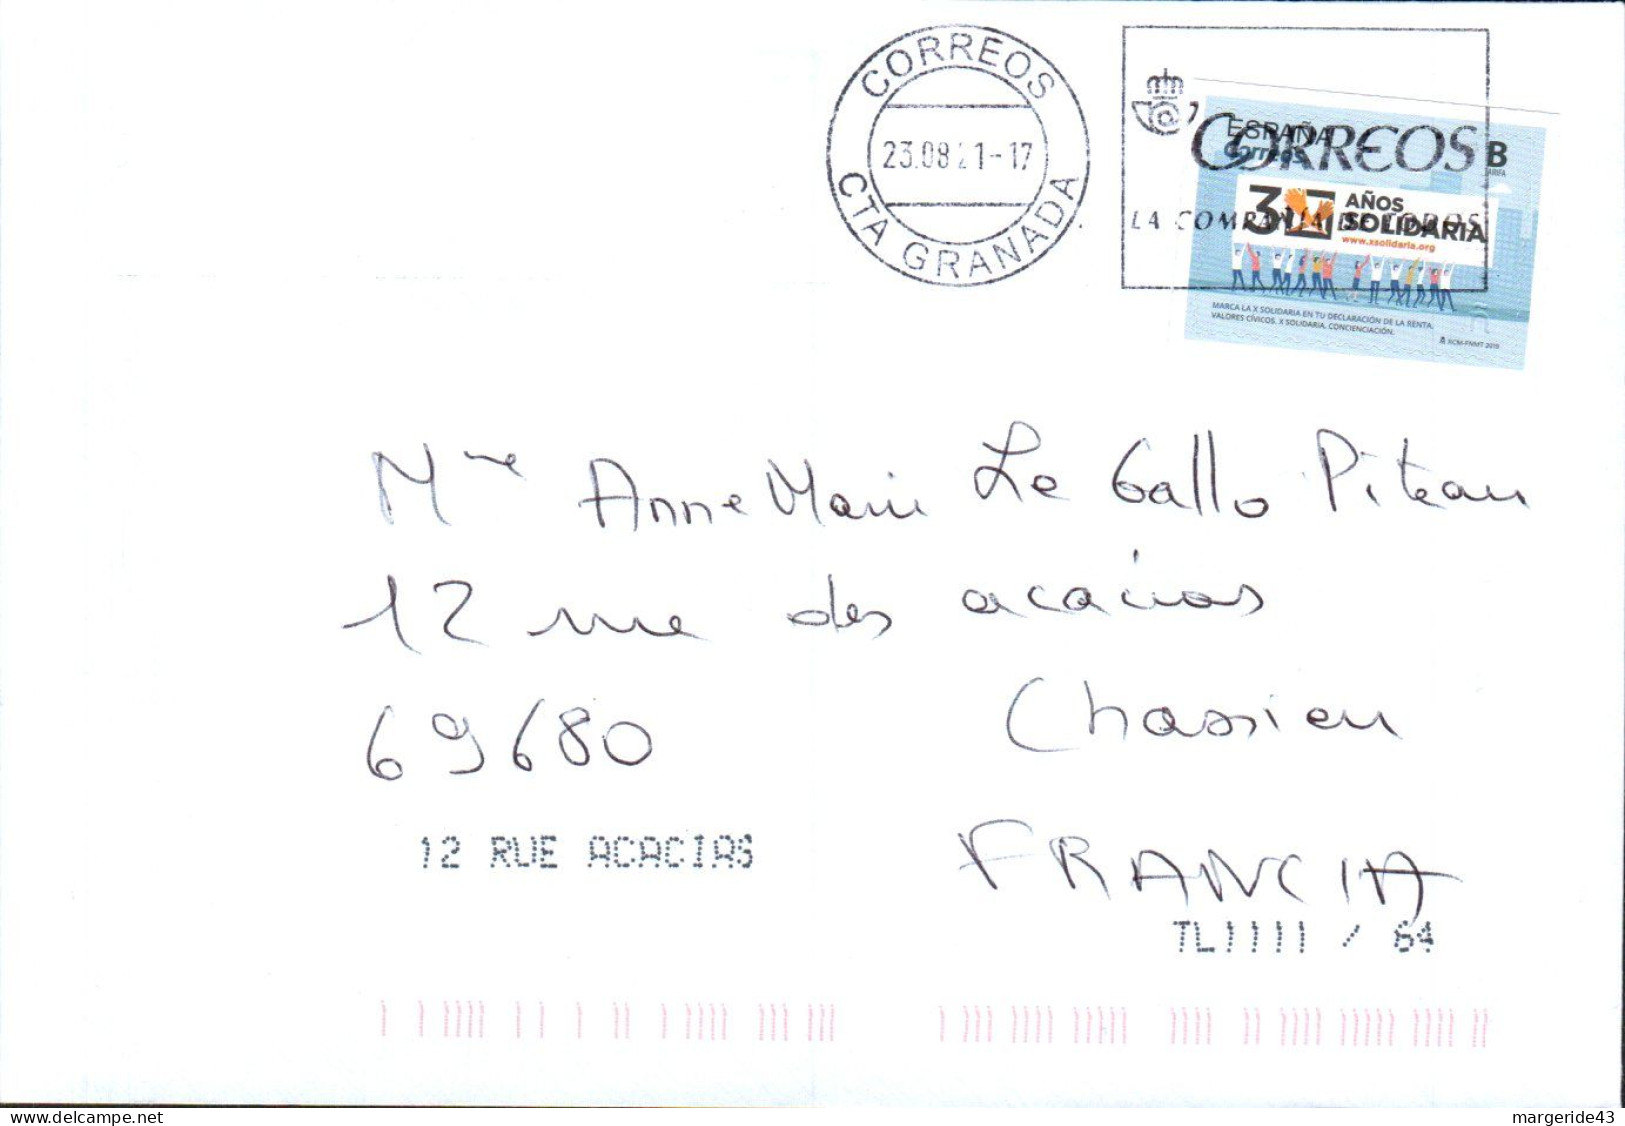 CORREOS
23.08 21-17
CTA GRANADA
CORREOS
LA COMPAÑIA DE TODOS
ESPAÑA
Correos
B
TARIFA
30 AÑOS
SOLIDARIA
www.xsolidaria.org
MARCA LA X SOLIDARIA EN TU DECLARACIÓN DE LA RENTA.
VALORES CÍVICOS. X SOLIDARIA. CONCIENCIACIÓN.
RCM-FNMT 2019
Mme Anne Marie Le Gallo Piteau
12 rue des acacias
69680 Chassieu
12 RUE ACACIAS
FRANCIA
TL1111 / 64
www.delcampe.net
margeride43